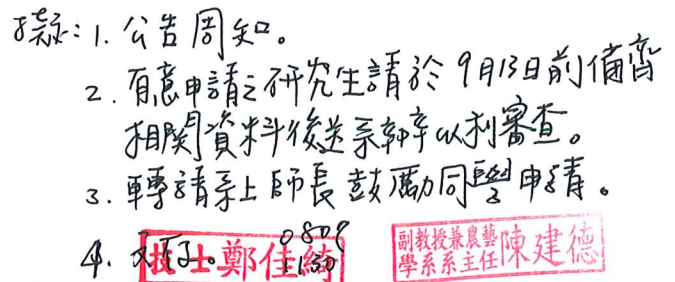 擬：1. 公告周知。
2. 有意申請之研究生請於9月13日前備齊
相關資料後送系辦以利審查。
3. 轉請系上師長鼓勵同學申請。
4. 文存。 0809
技士鄭佳綺 1130
副教授兼農藝
學系系主任 陳建德